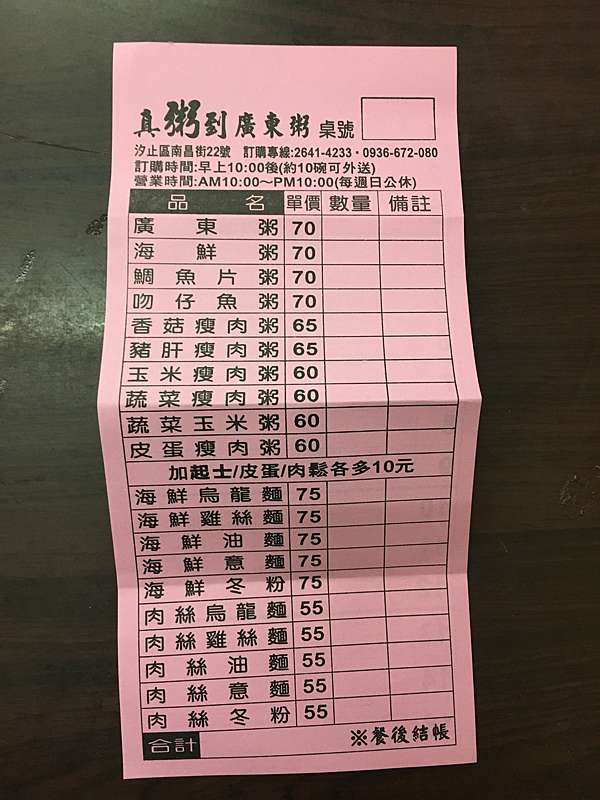 真粥到廣東粥 桌號
汐止區南昌街22號 訂購專線:2641-4233·0936-672-080
訂購時間:早上10:00後(約10碗可外送)
營業時間:AM10:00~PM10:00(每週日公休)
品名 單價 數量 備註
廣東粥 70
海鮮粥 70
鯛魚片粥 70
吻仔魚粥 70
香菇瘦肉粥 65
豬肝瘦肉粥 65
玉米瘦肉粥 60
蔬菜瘦肉粥 60
蔬菜玉米粥 60
皮蛋瘦肉粥 60
加起士/皮蛋/肉鬆各多10元
海鮮烏龍麵 75
海鮮雞絲麵 75
海鮮油麵 75
海鮮意麵 75
海鮮冬粉 75
肉絲烏龍麵 55
肉絲雞絲麵 55
肉絲油麵 55
肉絲意麵 55
肉絲冬粉 55
合計 ※餐後結帳